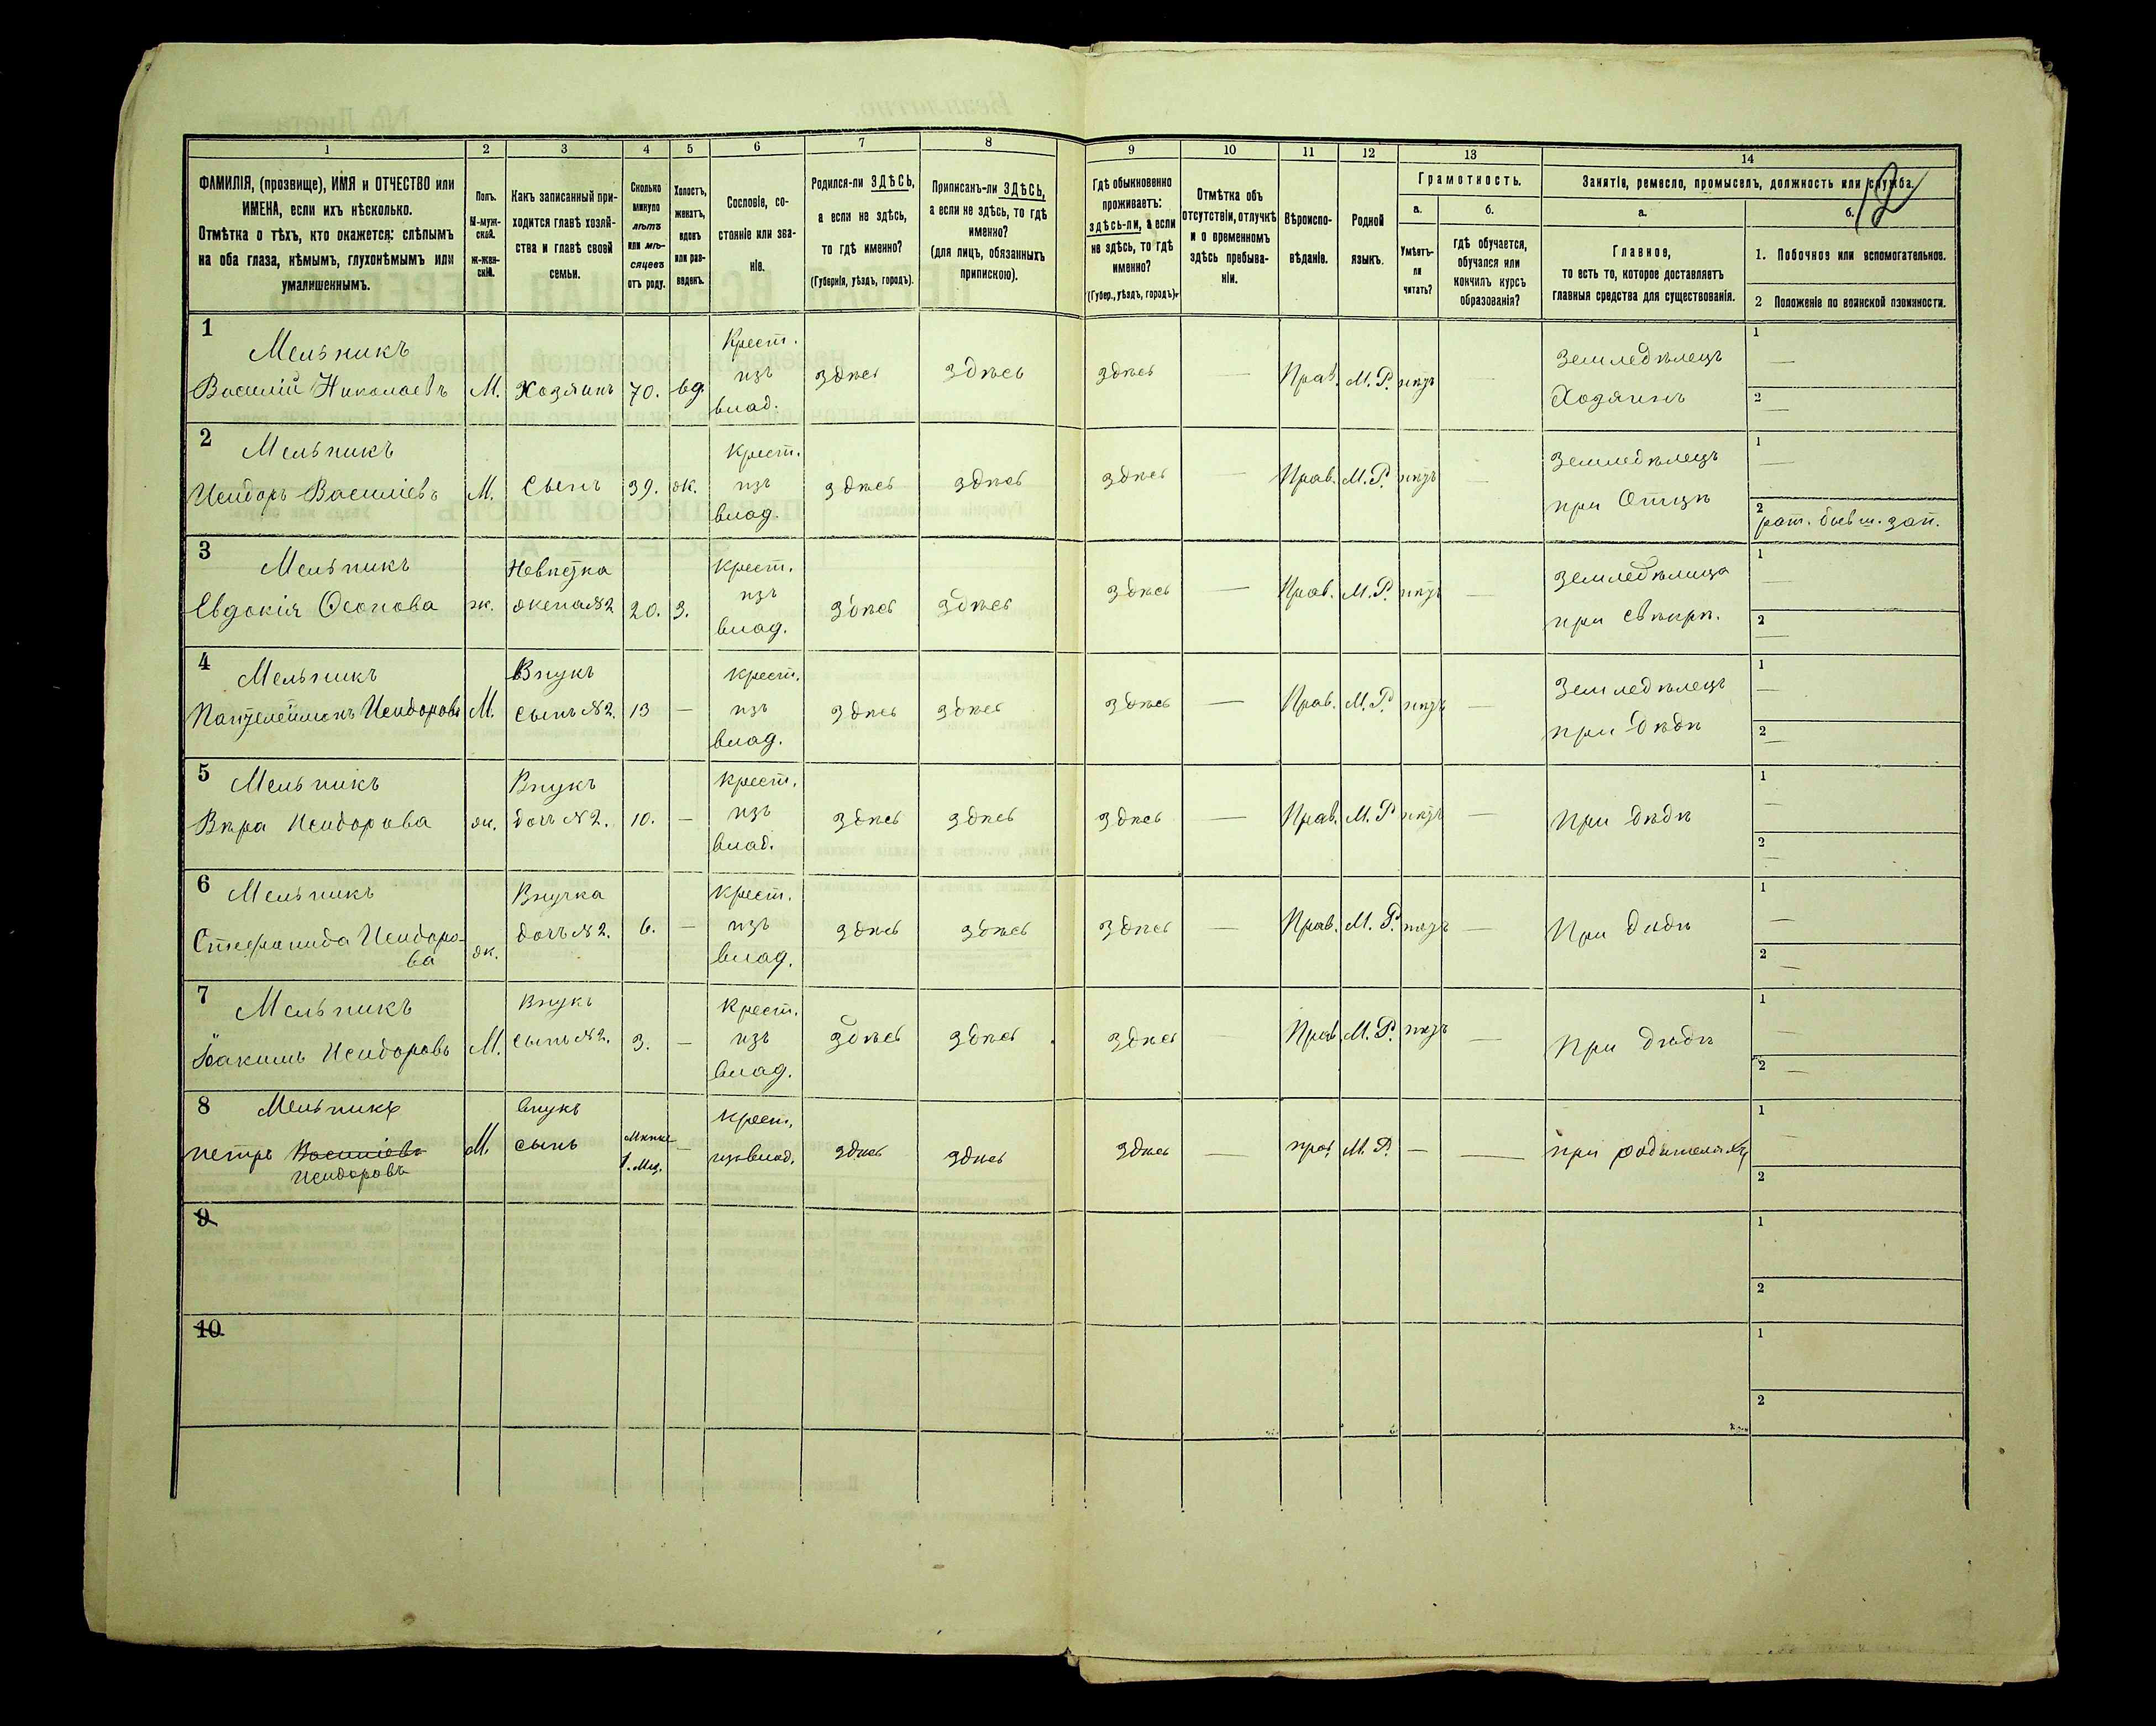 12
1 2 3 4 5 6 7 8 9 10 11 12 13 14
ФАМИЛІЯ, (прозвище), ИМЯ и ОТЧЕСТВО или
ИМЕНА, если ихъ нѣсколько.
Отмѣтка о тѣхъ, кто окажется: слѣпымъ
на оба глаза, нѣмымъ, глухонѣмымъ или
умалишеннымъ.
Полъ.
М-муж-
ской.
ж-жен-
скій.
Какъ записанный при-
ходится главѣ хозяй-
ства и главѣ своей
семьи.
Сколько
минуло
лѣтъ
или мѣ-
сяцевъ
отъ роду.
Холостъ,
женатъ,
вдовъ
или раз-
веденъ.
Сословіе, со-
стояніе или зва-
ніе.
Родился-ли ЗДѢСЬ,
а если не здѣсь,
то гдѣ именно?
(Губернія, уѣздъ, городъ).
Приписанъ-ли ЗДѢСЬ,
а если не здѣсь, то гдѣ
именно?
(для лицъ, обязанныхъ
припискою).
Гдѣ обыкновенно
проживаетъ:
здѣсь-ли, а если
не здѣсь, то гдѣ
именно?
(Губер., уѣздъ, городъ).
Отмѣтка объ
отсутствіи, отлучкѣ
и о временномъ
здѣсь пребыва-
ніи.
Вѣроиспо-
вѣданіе.
Родной
языкъ.
Грамотность.
а.
Умѣетъ-
ли
читать?
б.
гдѣ обучается,
обучался или
кончилъ курсъ
образованія?
Занятіе, ремесло, промыселъ, должность или служба.
а.
Главное,
то есть то, которое доставляетъ
главныя средства для существованія.
б.
1. Побочное или вспомогательное.
2 Положеніе по воинской повинности.
1
Мельникъ
Василій Николаевъ
М.
Хозяинъ
70.
вд.
Крест.
изъ
влад.
здѣсь
здѣсь
здѣсь
—
Прав.
М. Р.
—
Земледѣлецъ
Хозяинъ
1
—
2
—
2
Мельникъ
Исидоръ Василіевъ
М.
Сынъ
39.
ж.
Крест.
изъ
влад.
здѣсь
здѣсь
здѣсь
—
Прав.
М. Р.
—
Земледѣлецъ
при Отцѣ
1
—
2
рат. бывш. зап.
3
Мельникъ
Евдокія Осопова
ж.
Невѣстка
жена №2
20.
З.
Крест.
изъ
влад.
здѣсь
здѣсь
здѣсь
—
Прав.
М. Р.
—
Земледѣлица
при свѣкрѣ.
1
—
2
—
4
Мельникъ
Пантелеймонъ Исидоровъ
М.
Внукъ
сынъ №2.
13
—
Крест.
изъ
влад.
здѣсь
здѣсь
здѣсь
—
Прав.
М. Р.
—
Земледѣлецъ
при дѣдѣ
1
—
2
—
5
Мельникъ
Вѣра Исидорова
ж.
Внукъ
дочь №2.
10.
—
Крест.
изъ
влад.
здѣсь
здѣсь
здѣсь
—
Прав.
М. Р
—
при дѣдѣ
1
—
2
—
6
Мельникъ
Стефанида Исидоро-
ва
ж.
Внучка
дочь №2.
6.
—
Крест.
изъ
влад.
здѣсь
здѣсь
здѣсь
—
Прав.
М. Р.
—
При дѣдѣ
1
—
2
—
7
Мельникъ
Іоакимъ Исидоровъ
М.
Внукъ
сынъ №2.
3.
—
Крест.
изъ
влад.
здѣсь
здѣсь
здѣсь
—
Прав.
М. Р.
—
При дѣдѣ
1
—
2
—
8
Мельникъ
петръ Василіевъ
Исидоровъ
М.
внукъ
сынъ
1. Мц.
—
Крест.
изъ влад.
здѣсь
здѣсь
здѣсь
—
прав
М. Р.
—
—
при родителяхъ
1
—
2
9
1
2
10
1
2